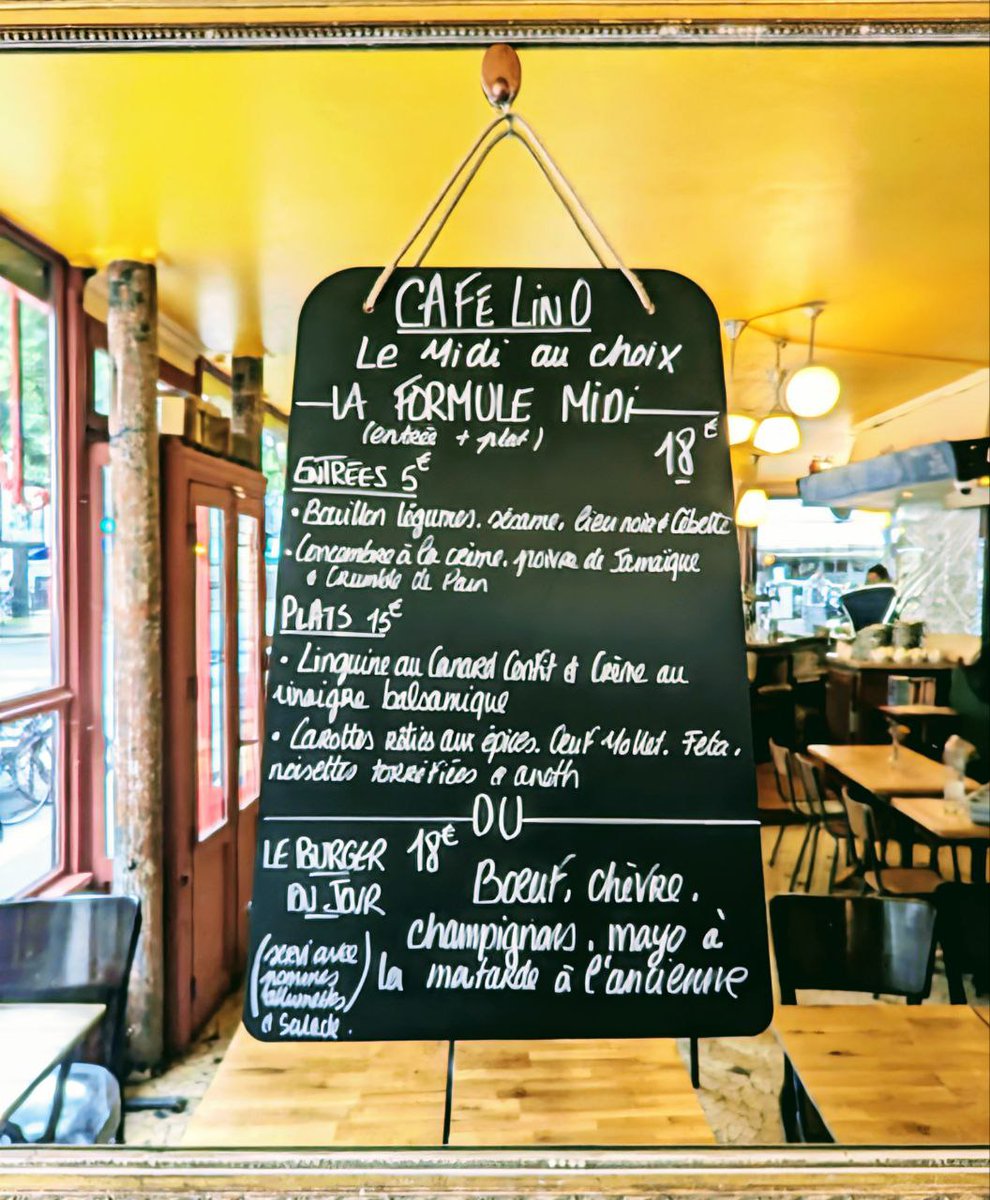 CAFE LINO
Le Midi au choix
LA FORMULE MIDI
(entrée + plat)
18€
ENTRÉES 5€
• Bouillon légumes, sésame, lieu noir & Cébette
• Concombre à la crème, poivre de Jamaïque
& Crumble de Pain
PLATS 15€
• Linguine au Canard Confit & Crème au
vinaigre balsamique
• Carottes rôties aux épices, Oeuf Mollet, Feta,
noisettes torréfiées & aneth
OU
LE BURGER 18€
DU JOUR
Bœuf, chèvre,
champignons, mayo à
la moutarde à l'ancienne
(servi avec
pommes
allumettes)
& salade.